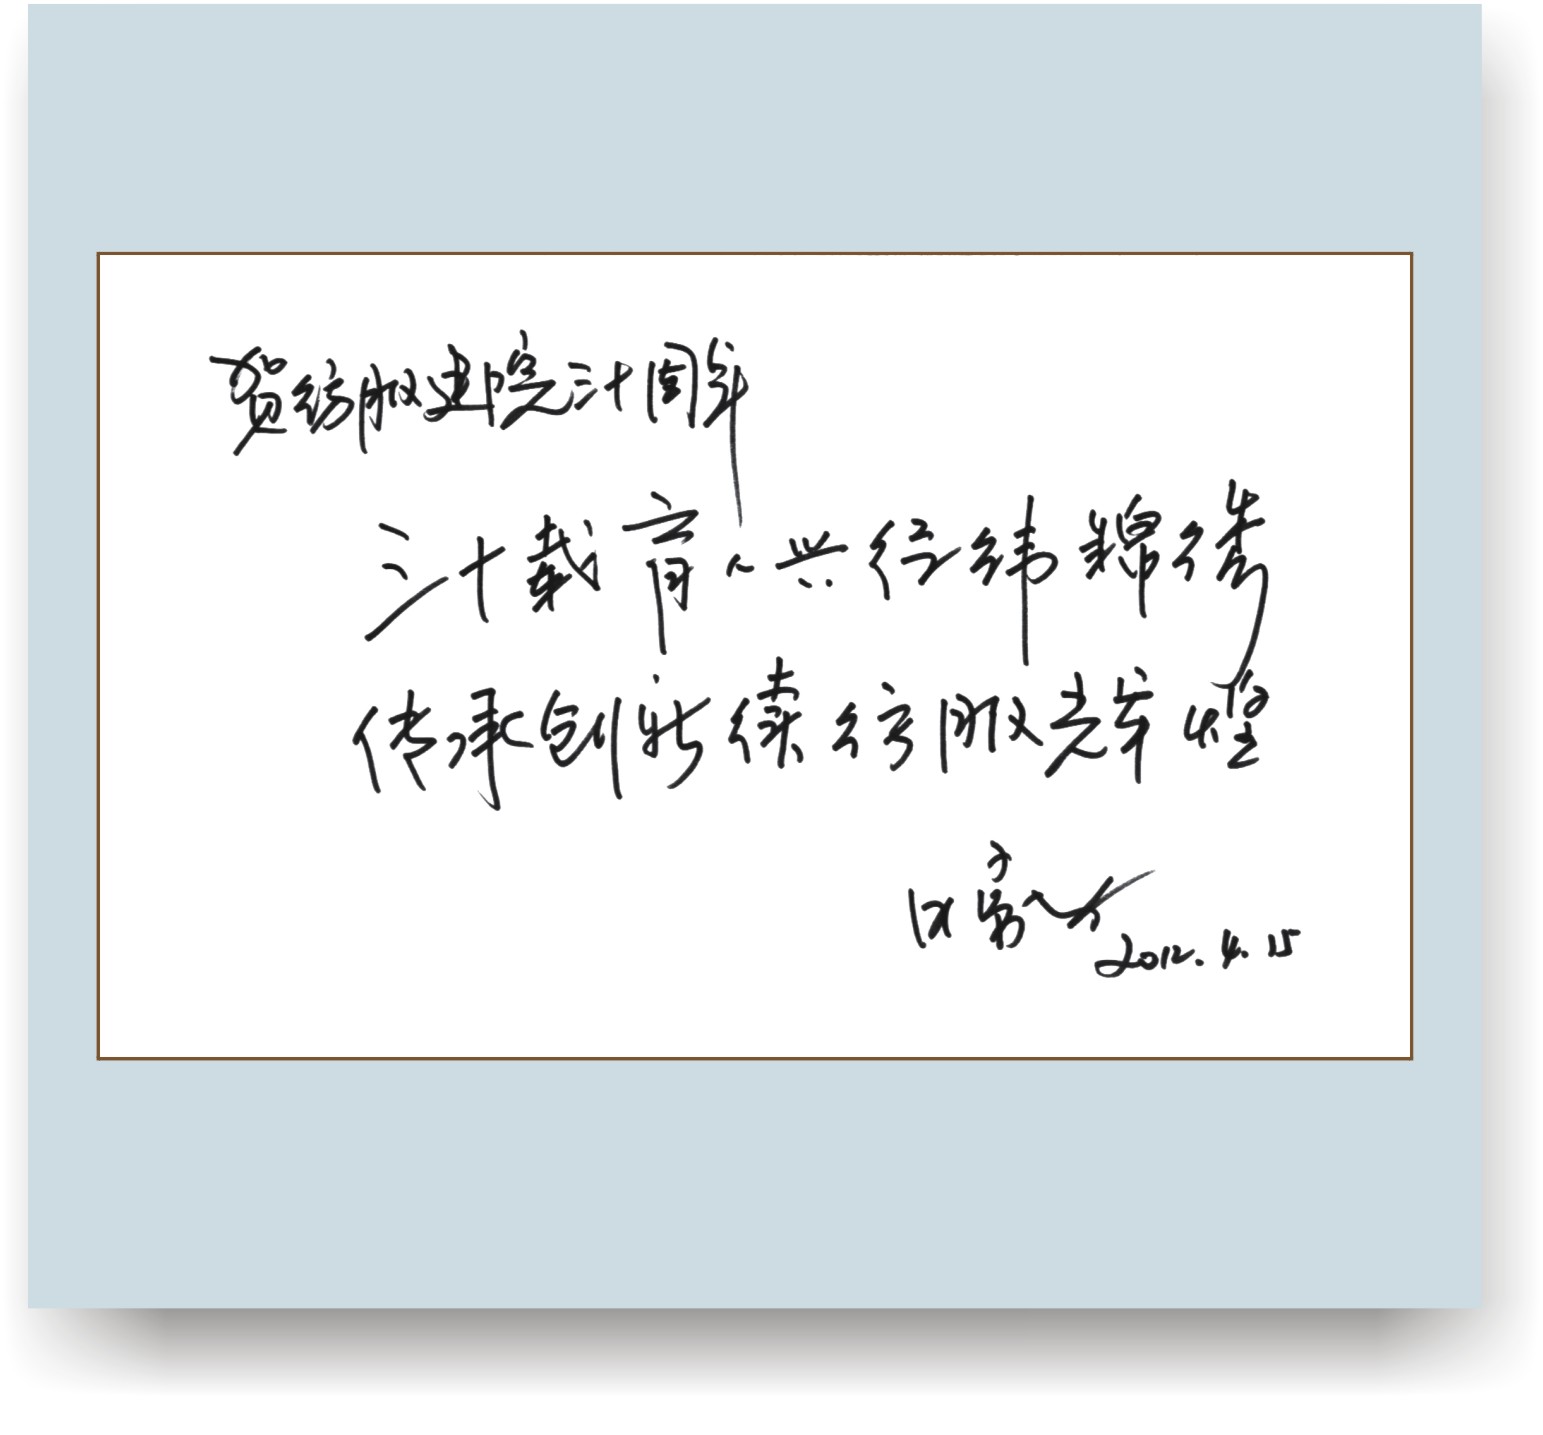 贺纺服建院三十周年
三十载育人兴经纬锦绣
传承创新续纺服辉煌
2012.4.15